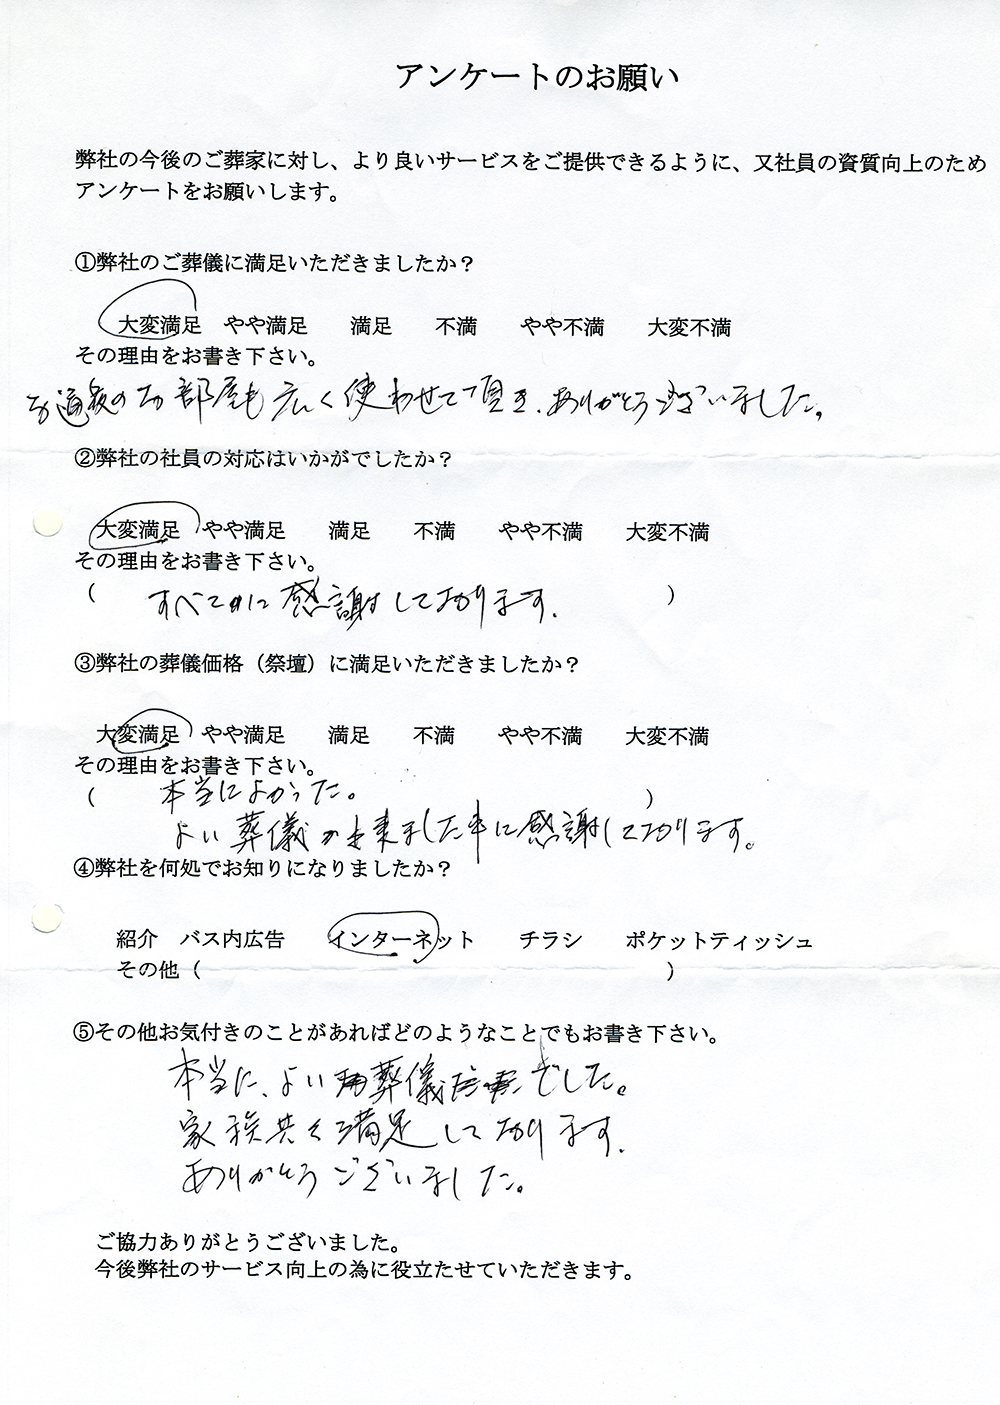 アンケートのお願い
弊社の今後のご葬家に対し、より良いサービスをご提供できるように、又社員の資質向上のため
アンケートをお願いします。
①弊社のご葬儀に満足いただきましたか？
大変満足 やや満足 満足 不満 やや不満 大変不満
その理由をお書き下さい。
お通夜のお部屋も広く使わせて頂き、ありがとうございました。
②弊社の社員の対応はいかがでしたか？
大変満足 やや満足 満足 不満 やや不満 大変不満
その理由をお書き下さい。
( すべてに感謝しております. )
③弊社の葬儀価格（祭壇）に満足いただきましたか？
大変満足 やや満足 満足 不満 やや不満 大変不満
その理由をお書き下さい。
( 本当によかった。 )
よい葬儀が出来ました事に感謝しております。
④弊社を何処でお知りになりましたか？
紹介 バス内広告 インターネット チラシ ポケットティッシュ
その他 ( )
⑤その他お気付きのことがあればどのようなことでもお書き下さい。
本当に、よい葬儀でした。
家族共々満足しております.
ありがとうございました。
ご協力ありがとうございました。
今後弊社のサービス向上の為に役立たせていただきます。